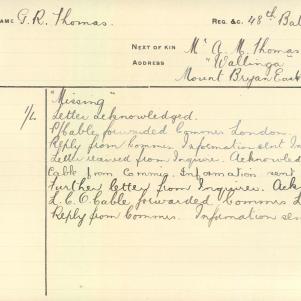 NAME G. R. Thomas. REG. &C. 48th Bat
NEXT OF KIN Mr A. M. Thomas
ADDRESS "Wallinga"
Mount Bryan East
"Missing"
1/L Letter acknowledged.
Cable forwarded Commrs London.
Reply from Commrs. Information sent In
Letter received from Inquirer. Acknowled
Cable from Commrs. Information sent
Further letter from Inquirer. Ack
L.C.O. Cable forwarded Commrs L
Reply from Commrs. Information s